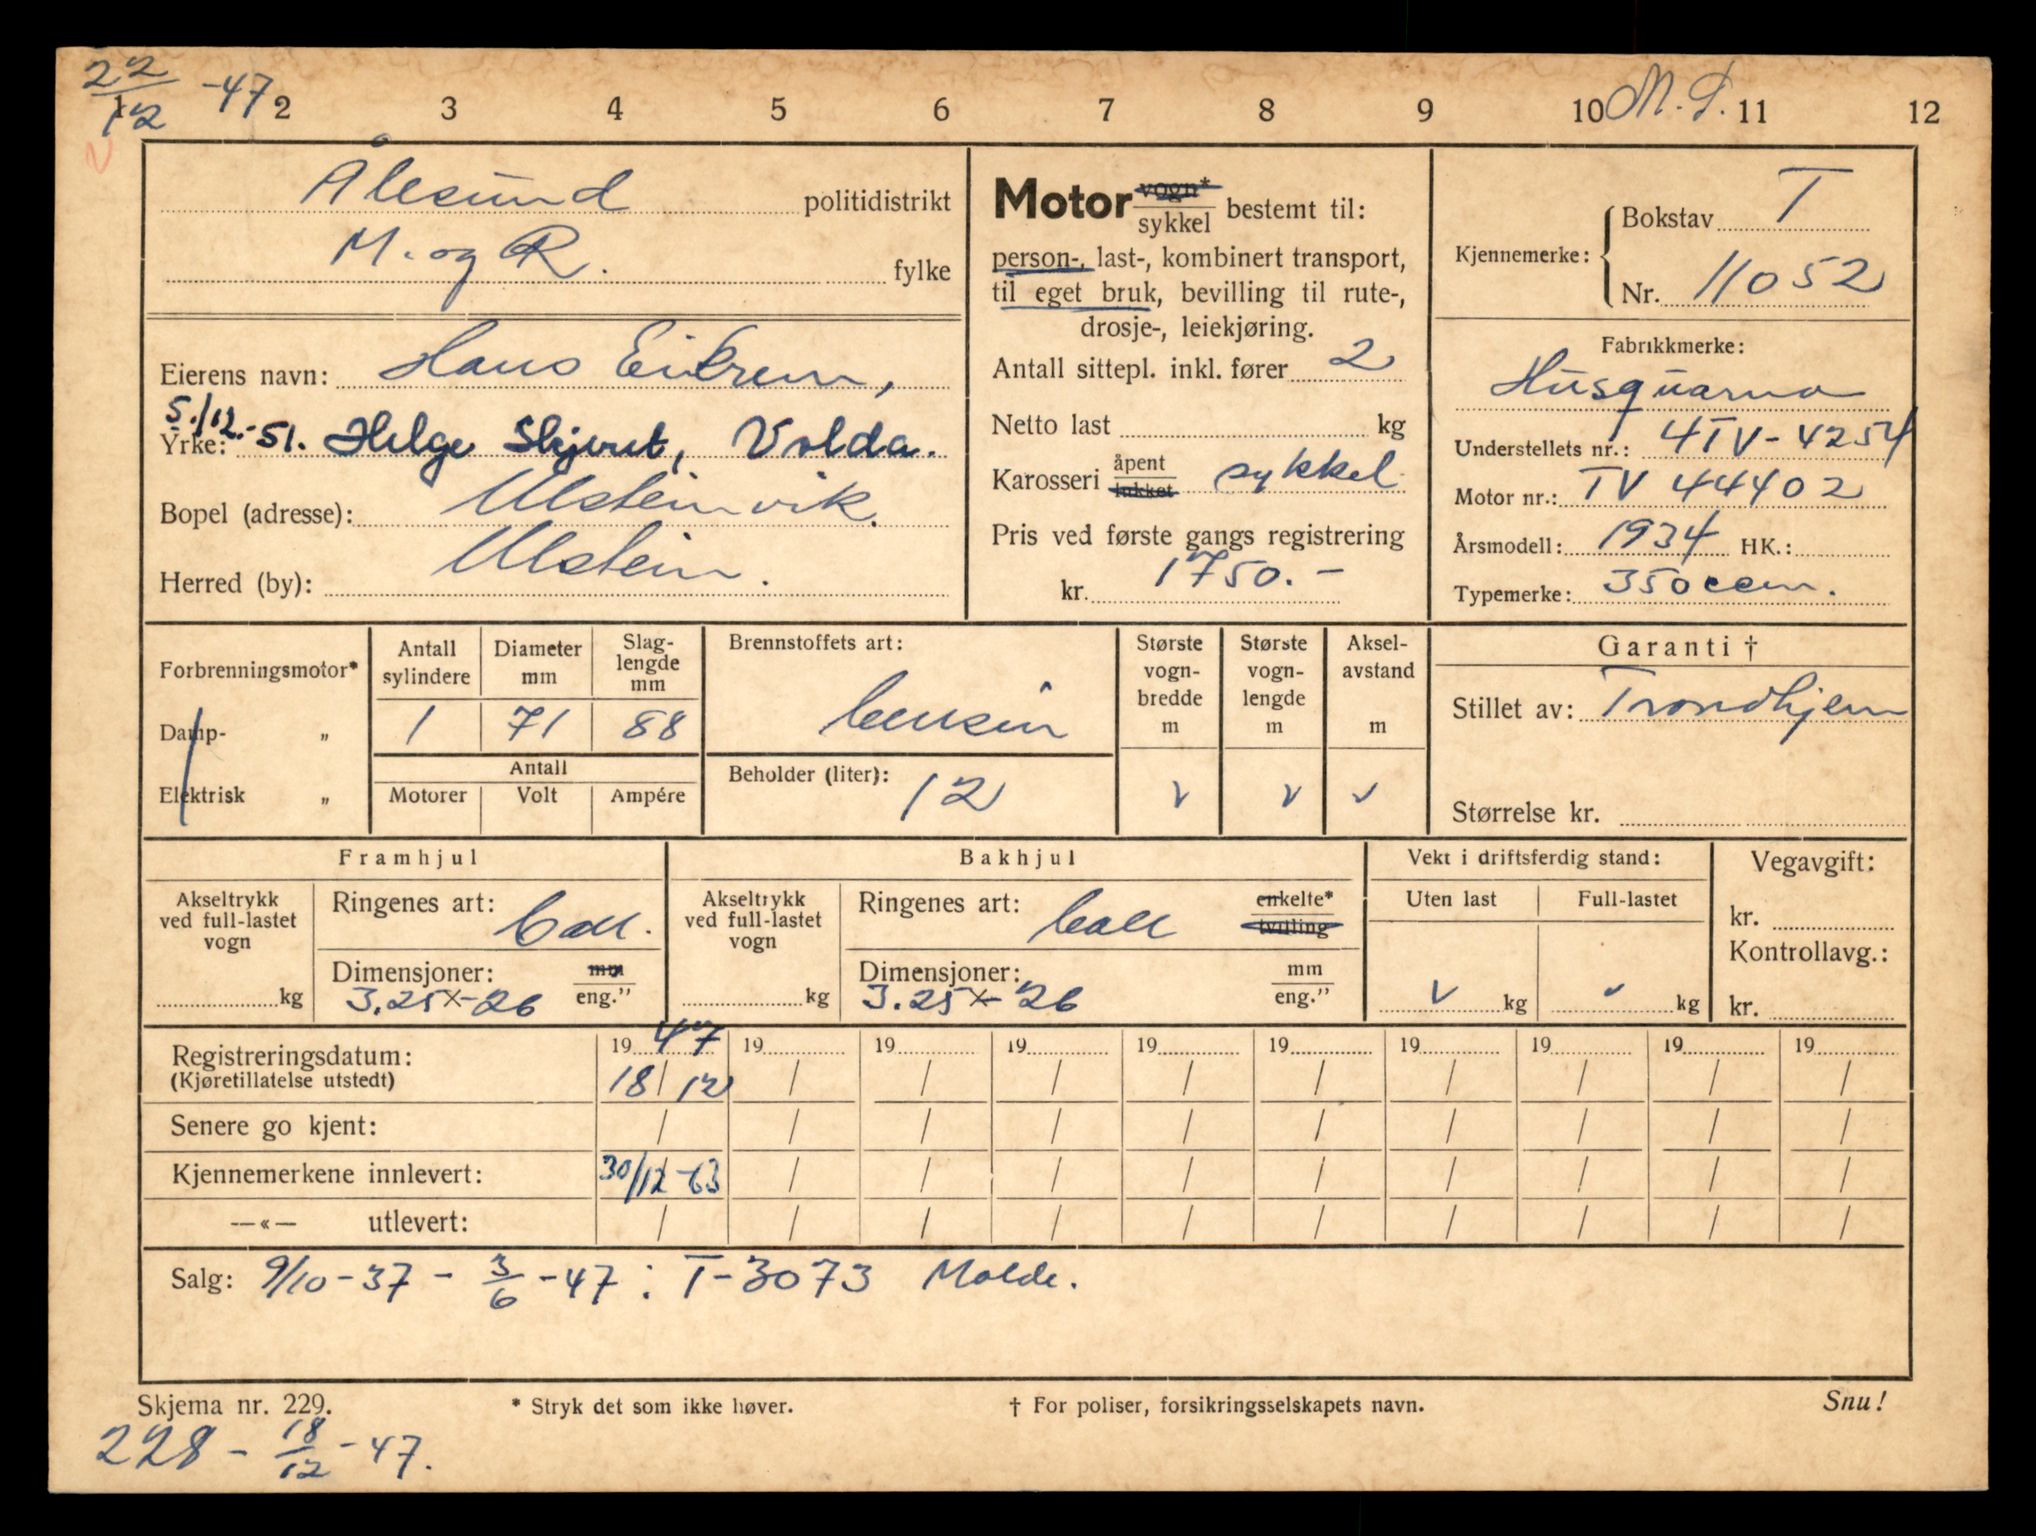 22/12 -47
1 2 3 4 5 6 7 8 9 10 M.S. 11 12
Ålesund politidistrikt
M. og R. fylke
Eierens navn: Hans Eikrem,
5./12.-51. Helge Skjeret, Volda.
Yrke:
Bopel (adresse): Ulsteinvik.
Herred (by): Ulstein.
Motor vogn*/sykkel bestemt til:
person-, last-, kombinert transport,
til eget bruk, bevilling til rute-,
drosje-, leiekjøring.
Antall sittepl. inkl. fører 2
Netto last kg
Karosseri åpent/lukket sykkel
Pris ved første gangs registrering
kr. 1750.-
Kjennemerke: Bokstav T
Nr. 11052
Fabrikkmerke:
Husquarna
Understellets nr.: 4TV-4254
Motor nr.: TV 44402
Årsmodell: 1934 HK.:
Typemerke: 350 ccm.
Forbrenningsmotor*
Damp- „
Elektrisk „
Antall sylindere Diameter mm Slag-lengde mm
1 71 88
Antall
Motorer Volt Ampére
Brennstoffets art:
bensin
Beholder (liter): 12
Største vogn-bredde m Største vogn-lengde m Aksel-avstand m
v v v
Garanti †
Stillet av: Trondhjem
Størrelse kr.
Framhjul
Akseltrykk ved full-lastet vogn
kg
Ringenes art: ball.
Dimensjoner: mm/eng.”
3.25 x-26
Bakhjul
Akseltrykk ved full-lastet vogn
kg
Ringenes art: ball enkelte*/tvilling
Dimensjoner: mm/eng.”
3.25 x-26
Vekt i driftsferdig stand:
Uten last Full-lastet
v kg v kg
Vegavgift:
kr.
Kontrollavg.:
kr.
Registreringsdatum: 19 47 19 19 19 19 19 19 19 19 19
(Kjøretillatelse utstedt) 18/12 / / / / / / / / /
Senere go kjent: / / / / / / / / / /
Kjennemerkene innlevert: 30/12-63 / / / / / / / / /
—«— utlevert: / / / / / / / / / /
Salg: 9/10-37 - 3/6-47 : T-3073 Molde.
Skjema nr. 229. * Stryk det som ikke høver. † For poliser, forsikringsselskapets navn. Snu!
228 - 18/12-47.